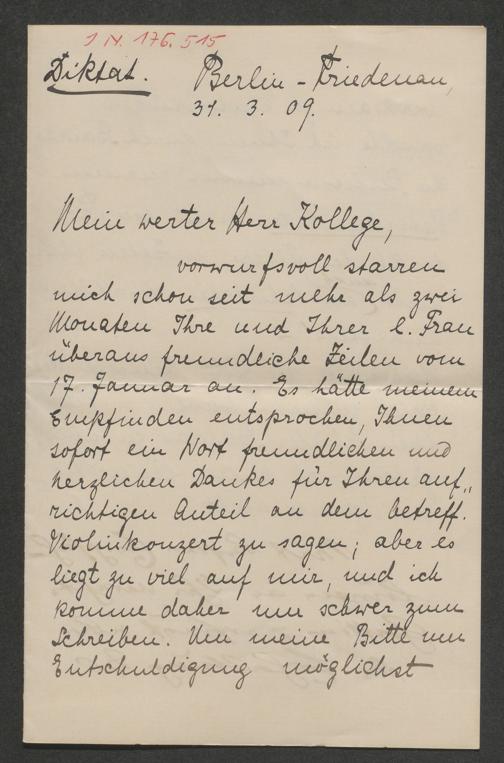 J. N. 176.515
Diktat. Berlin-Friedenau,
31. 3. 09.
Mein werter Herr Kollege,
vorwurfsvoll starren
mich schon seit mehr als zwei
Monaten Ihre und Ihrer l. Frau
überaus freundliche Zeilen vom
17. Januar an. Es hätte meinem
Empfinden entsprochen, Ihnen
sofort ein Wort freundlichen und
herzlichen Dankes für Ihren auf„
richtigen Anteil an dem betreff.
Violinkonzert zu sagen; aber es
liegt zu viel auf mir, und ich
komme daher nur schwer zum
Schreiben. Um meine Bitte um
Entschuldigung möglichst